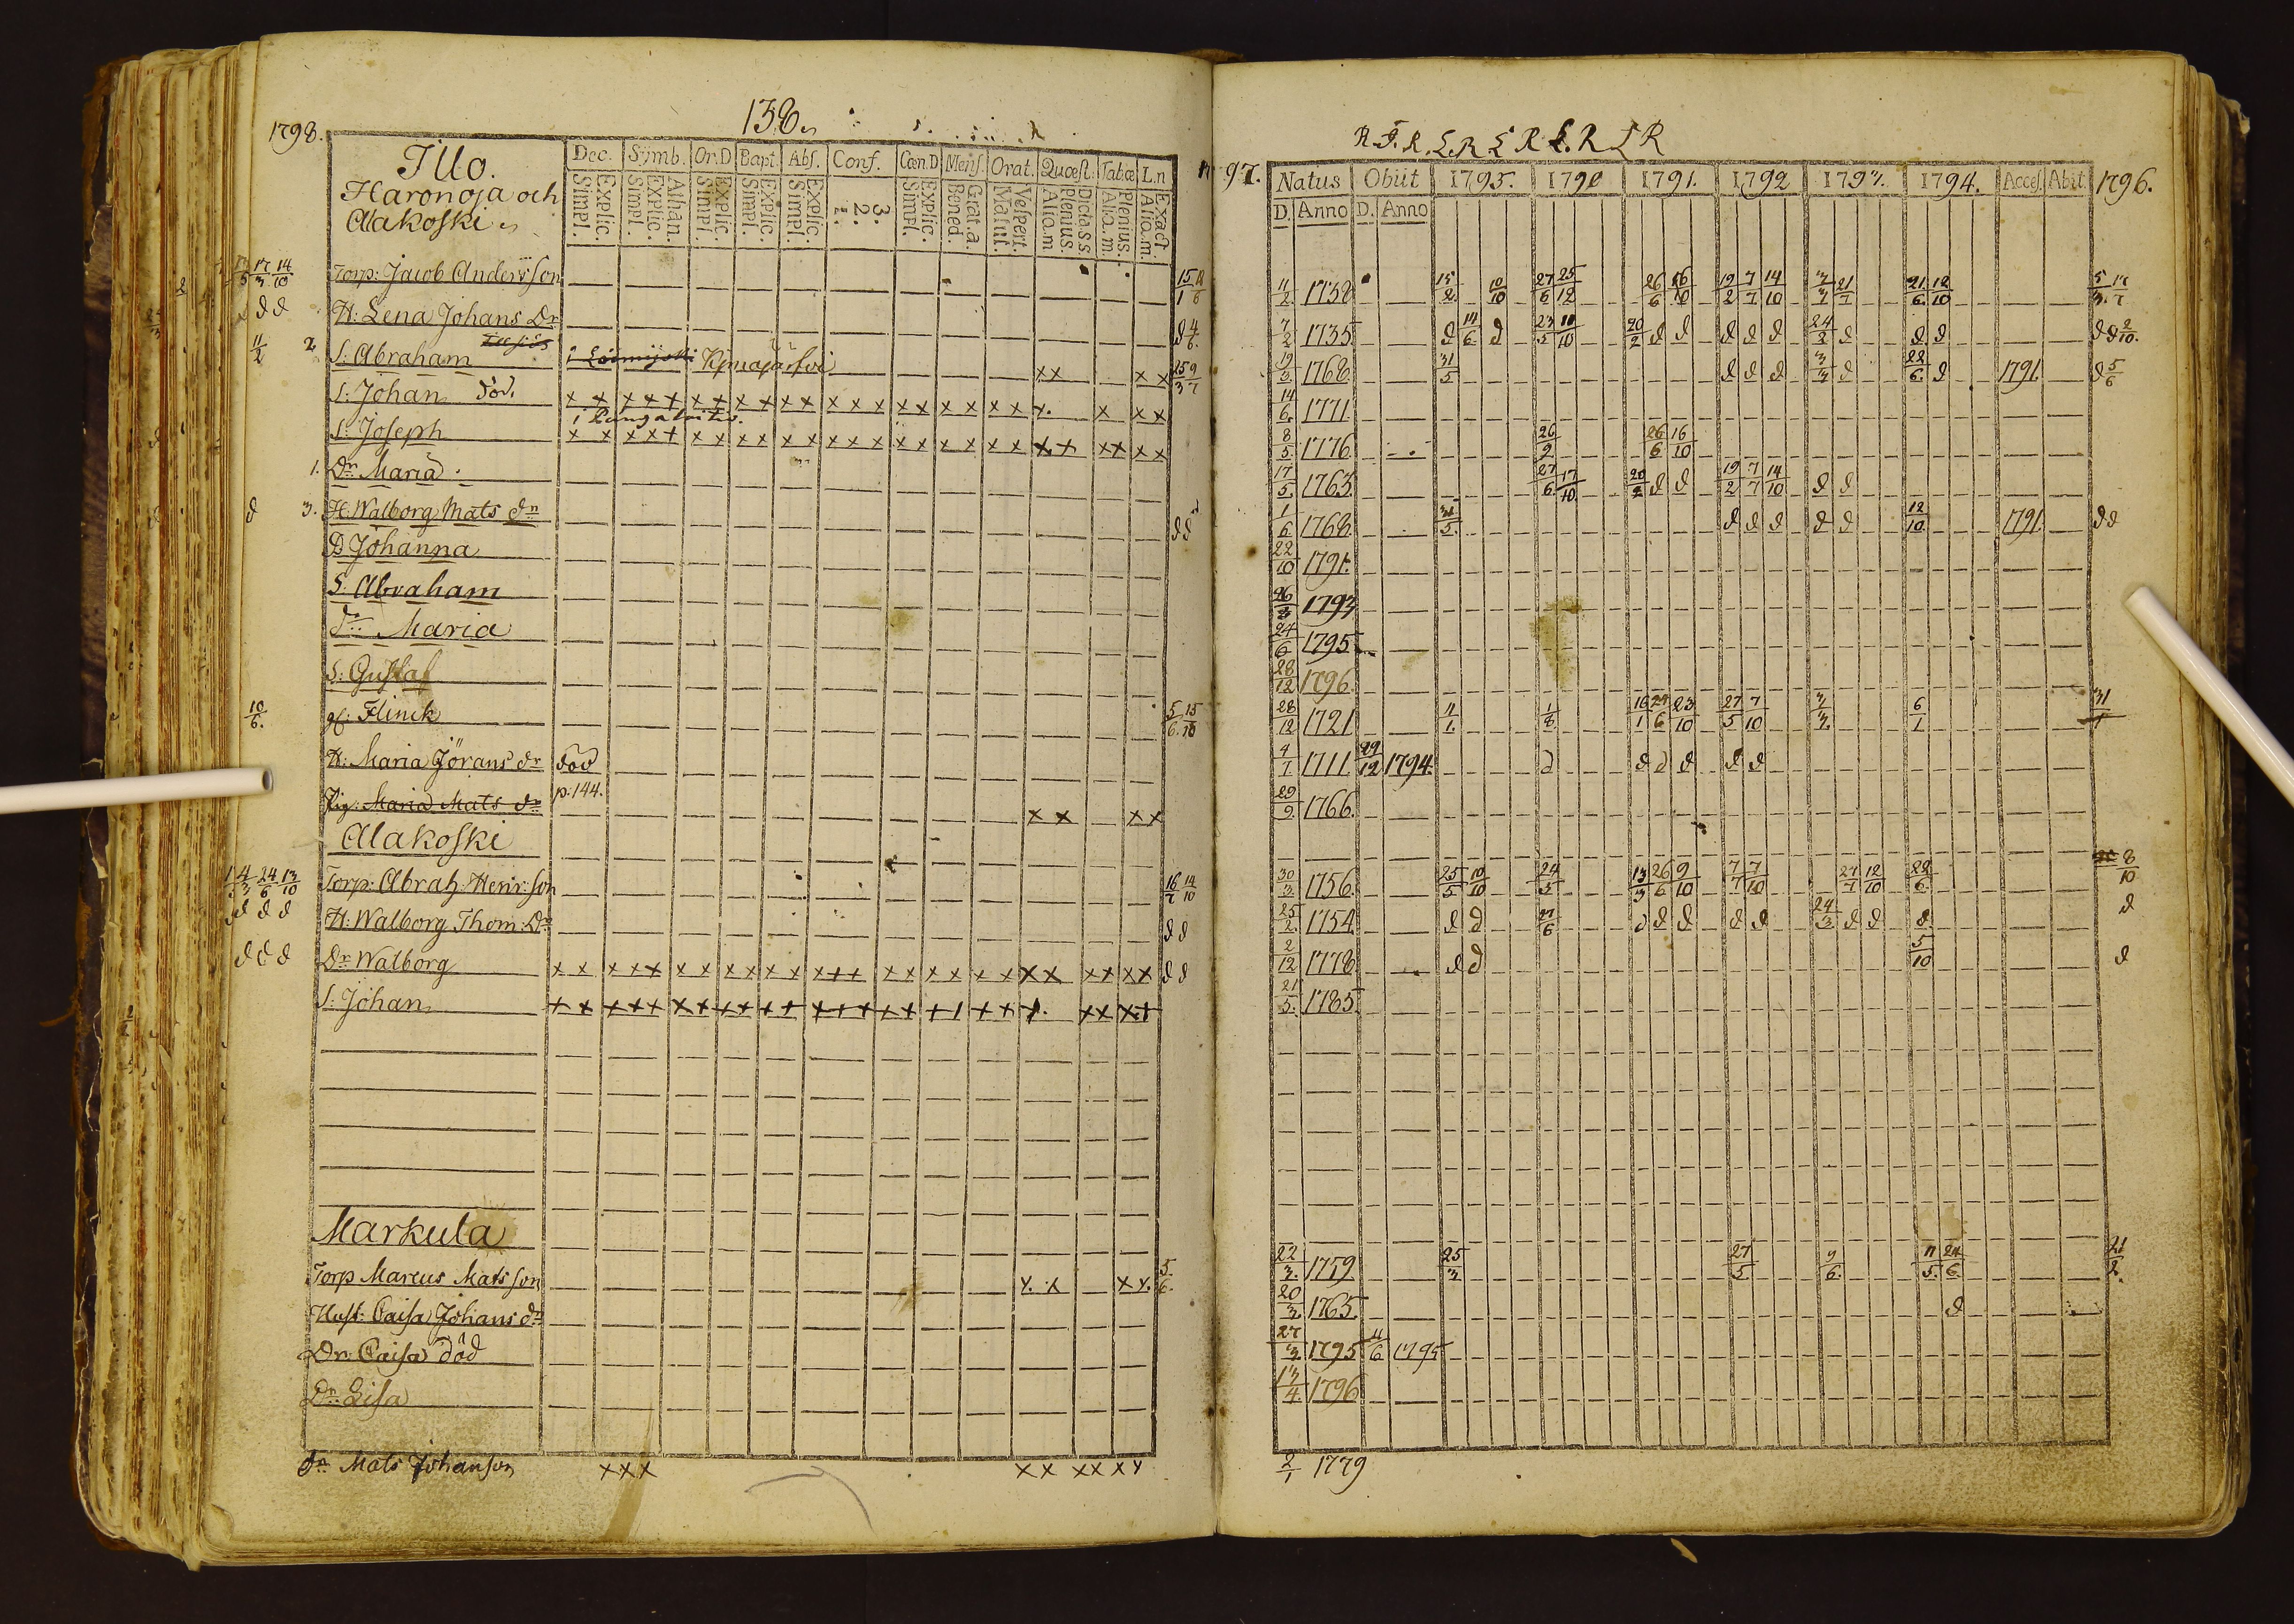 138.
1798.
Illo.
Haronoja och
Alakoski.
Dec. Symb. Or.D Bapt. Abs. Conf. Cœn.D Mens. Orat. Quæst. Tabæ L.n
Explic. Simpl. Athan. Explic. Simpl. Explic. Simpl. Explic. Simpl. Explic. Simpl. 3. 2. 1. Explic. Simpl. Grat.a. Bened. Vespert. Matut. Dict.a s.s. Plenius. Aliq.m Plenius. Aliq.m Exact. Aliq.m
17/3 14/10 Torp: Jacob Anders son 15/1
d d H: Lena Johans Dr d 4/6
11/2 2 S: Abraham 25/3 9/7
S: Johan död. x x x x x x x x x x x x x x x x x x x x x x x x x
S: Joseph x x x x x x x x x x x x x x x x x x x x x x x x x x
1. Dr Maria
d 3. H Walborg Mats dr d d
D Johanna
S: Abraham
dr: Maria
S: Gustaf
10/6. gl: Flinck 5/6. 15/10
H: Maria Jörans dr död
Pig: Maria Mats dr p: 144. x x x x
Alakoski
14/3 24/6 13/10 Torp: Abrah: Henr: son 16/7 14/10
d d d H: Walborg Thom: Dr d d
d d d Dr Walborg x x x x x x x x x x x x x x x x x x x x x x x x x x d d
S: Johan x x x x x x x x x x x x x x x x x x x x x x x x x
Markula
Torp Marcus Mats son x. x x x. 5/6.
Hust: Caisa Johans dr
Dr: Caisa död
Dr: Lisa
dn Mats Johanson x x x x x x x x x
97.
Natus Obiit 1795. 1790 1791. 1792 1793. 1794. Acces. Abit. 1796.
D. Anno D. Anno
11/2 1738 15/2 10/10 27/6 25/12 26/6 16/10 19/2 7/7 14/10 3/3 21/7 21/6. 12/10 5/3. 17/7
7/2 1735 d 14/6 d 23/5 10/10 20/2 d d d d d 24/2 d d d d d 2/10.
19/3 1768 31/5 d d d 3/3 d 22/6. d 1791. d 5/6
14/6. 1771
8/5. 1776 26/9 26/6 16/10
17/5. 1763 27/6 17/10 20/2 d d 19/2 7/7 14/10 d d
1/6 1768. 31/5 d d d d d 12/10. 1791. d d
22/10 1791.
26/3 1793
24/6 1795
28/12 1796.
28/12 1721 11/1. 1/8 16/1 29/6 23/10 27/5 7/10 3/3. 6/1 31/1
4/7 1711 29/12 1794. d d d d d d
29/9. 1766.
30/3 1756. 25/5 10/10 24/5 13/3 26/6 9/10 7/7 7/10 27/7 12/10 22/6. 8/10
25/2. 1754 d d 27/6 d d d d d 24/3 d d d d
2/12 1778. d d 5/10 d
21/5. 1785.
22/3. 1759 25/3 27/5. 9/6. 11/5. 24/6. 21/2.
20/3. 1765. d
27/3. 1795 11/6 1795
13/4. 1796
2/1 1779